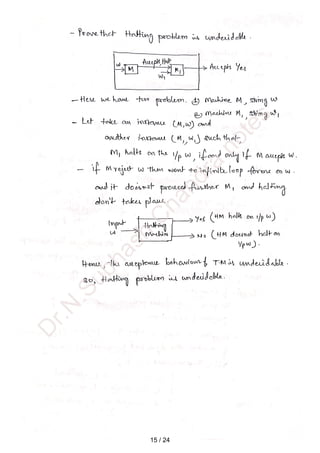 - Prove that Halting problem is undecidable.
Accept, Halt
w M M₁ → Accepts Yes
W₁
- Here we have two problem. ① Machine M, string w
② Machine M₁ string w₁
- Let take an instance (M, w) and
another instance (M₁, w₁) such that,
M₁ halts on the i/p w, if and only if M accepts w.
- if M reject w then went to infinite loop forever on w.
and it doesnot proceed further M₁ and halting
don't takes place.
Input
w
Halting
Machine
→ Yes (HM halts on i/p w)
→ No (HM doesnot halt on
i/p w).
Hence, the acceptance behaviour of TM is undecidable.
so, Halting problem is undecidable.
15 / 24